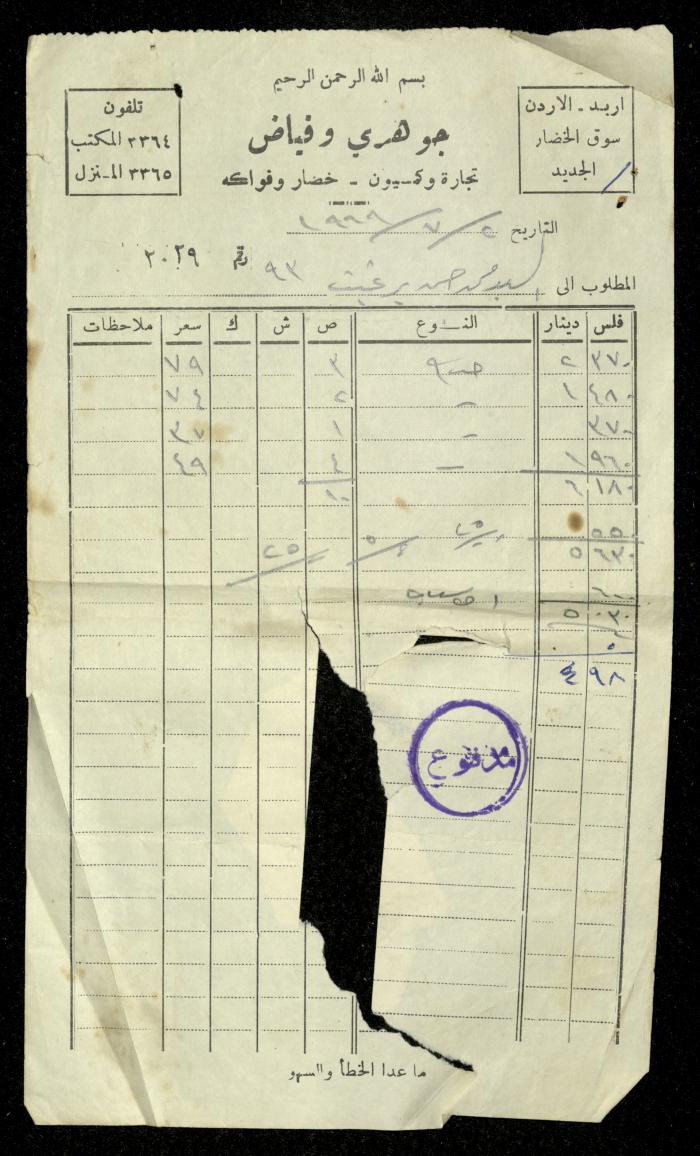 بسم الله الرحمن الرحيم
اربد - الاردن
سوق الخضار
الجديد
جوهري وفياض
تجارة وكمسيون - خضار وفواكه
تلفون
٢٣٦٤ المكتب
٢٣٦٥ المنزل
التاريخ ٢ / ٧ / ١٩٦٩
رقم ٢٠٢٩
المطلوب الى السيد محمد ٩٣
فلس دينار النوع ص ش ك سعر ملاحظات
٣٧٠ ٢ ٣ ٧٩
٤٨٠ ١ - ٢ ٧٤
٣٧٠ - ١ ٣٧
٩٦٠ ١ - ٤ ٤٩
١٨٠ ٦ ١٠
٥٥٠
٦٣٠ ٥
٦٠٠
٠٣٠ ٥
٩٨ ٤
مدفوع
ما عدا الخطأ والسهو